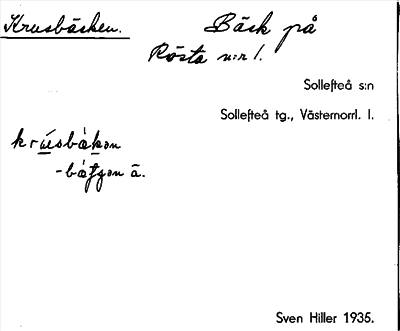 Krusbäcken. Bäck på
Rösta n:r 1.
Sollefteå s:n
Sollefteå tg., Västernorrl. l.
Sven Hiller 1935.